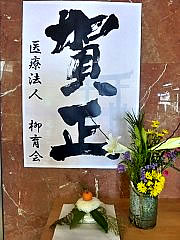 賀正
医療法人
柳育会